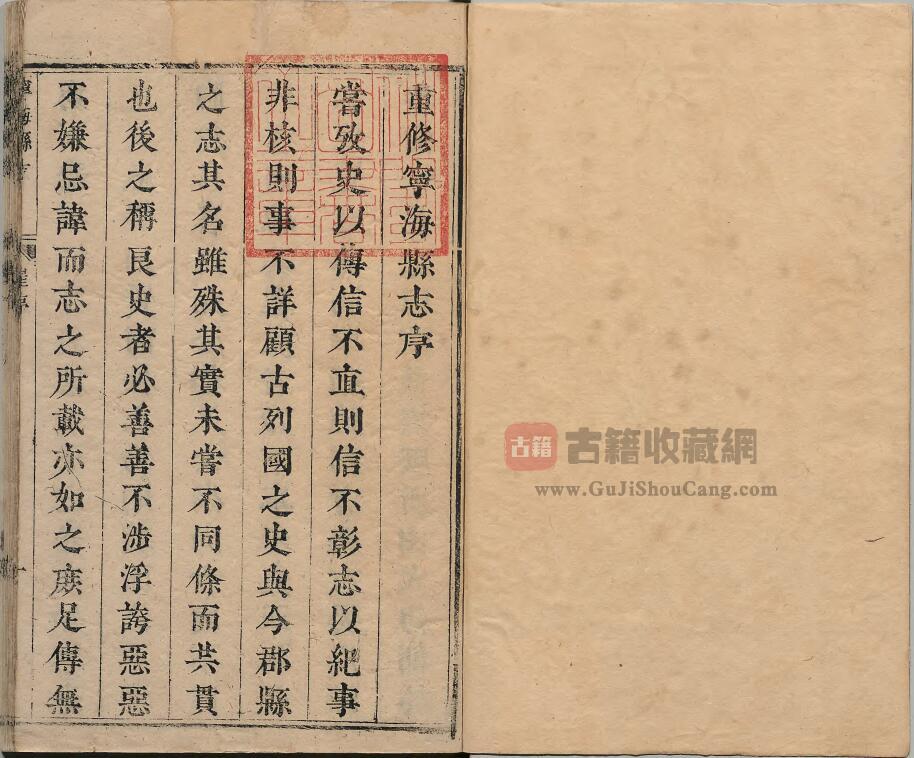 重修寧海縣志序
嘗攷史以傳信不直則信不彰志以紀事
非核則事不詳顧古列國之史與今郡縣
之志其名雖殊其實未嘗不同條而共貫
也後之稱良史者必善善不涉浮誇惡惡
不嫌忌諱而志之所載亦如之庶足傳無
寧海縣
古籍
古籍收藏網
www.GuJiShouCang.com